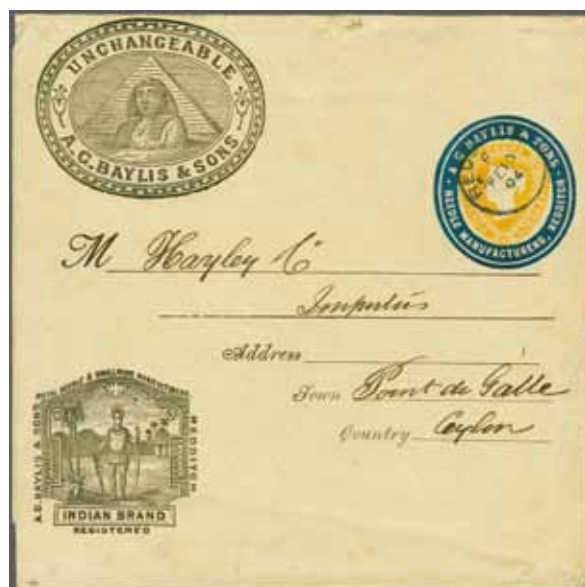 UNCHANGEABLE
A.C. BAYLIS & SONS
A C BAYLIS & SONS
NEEDLE MANUFACTURERS, REDDITCH
M Hayley & Co
Address
Town Point de Galle
Country Ceylon
A.C. BAYLIS & SONS
REDDITCH
INDIAN BRAND
REGISTERED